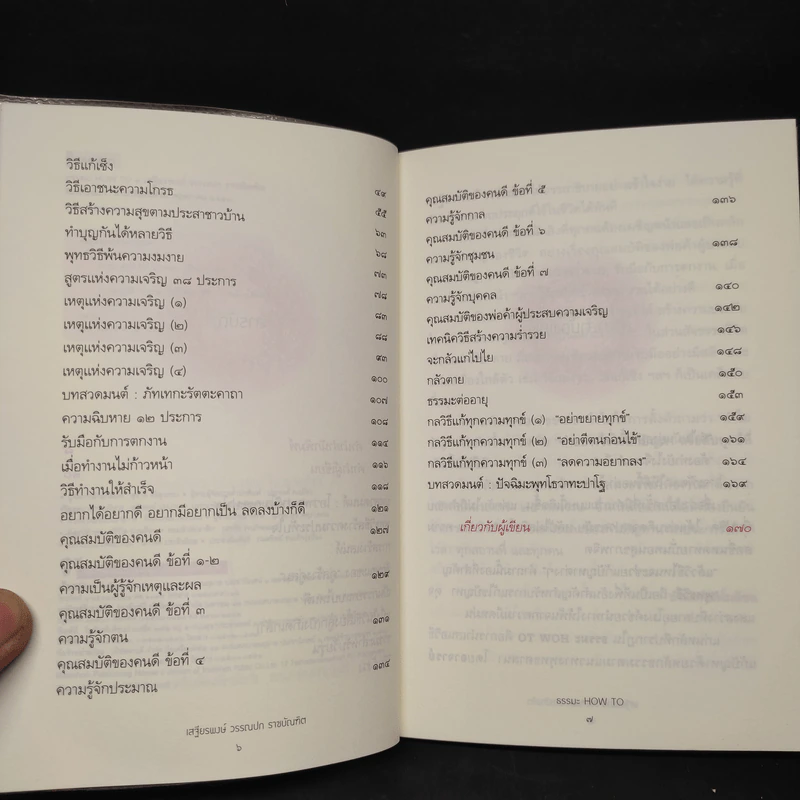 วิธีแก้เซ็ง ๔๙
วิธีเอาชนะความโกรธ ๕๕
วิธีสร้างความสุขตามประสาชาวบ้าน ๖๓
ทำบุญกันได้หลายวิธี ๖๘
พุทธวิธีพ้นความงมงาย ๗๓
สูตรแห่งความเจริญ ๓๘ ประการ ๗๘
เหตุแห่งความเจริญ (๑) ๘๓
เหตุแห่งความเจริญ (๒) ๘๘
เหตุแห่งความเจริญ (๓) ๙๓
เหตุแห่งความเจริญ (๔) ๑๐๐
บทสวดมนต์ : ภัทเทกะรัตตะคาถา ๑๐๗
ความฉิบหาย ๑๒ ประการ ๑๐๘
รับมือกับการตกงาน ๑๑๔
เมื่อทำงานไม่ก้าวหน้า ๑๑๖
วิธีทำงานให้สำเร็จ ๑๑๘
อยากได้อยากดี อยากมีอยากเป็น ลดลงบ้างก็ดี ๑๒๑
คุณสมบัติของคนดี ๑๒๗
คุณสมบัติของคนดี ข้อที่ ๑-๒
ความเป็นผู้รู้จักเหตุและผล ๑๒๙
คุณสมบัติของคนดี ข้อที่ ๓
ความรู้จักตน ๑๓๑
คุณสมบัติของคนดี ข้อที่ ๔
ความรู้จักประมาณ ๑๓๔
เสฐียรพงษ์ วรรณปก ราชบัณฑิต
๖
คุณสมบัติของคนดี ข้อที่ ๕
ความรู้จักกาล ๑๓๖
คุณสมบัติของคนดี ข้อที่ ๖
ความรู้จักชุมชน ๑๓๘
คุณสมบัติของคนดี ข้อที่ ๗
ความรู้จักบุคคล ๑๔๐
คุณสมบัติของพ่อค้าผู้ประสบความเจริญ ๑๔๒
เทคนิควิธีสร้างความร่ำรวย ๑๔๖
จะกลัวแก่ไปไย ๑๔๘
กลัวตาย ๑๕๐
ธรรมะต่ออายุ ๑๕๓
กลวิธีแก้ทุกความทุกข์ (๑) "อย่าขยายทุกข์" ๑๕๙
กลวิธีแก้ทุกความทุกข์ (๒) "อย่าตีตนก่อนไข้" ๑๖๑
กลวิธีแก้ทุกความทุกข์ (๓) "ลดความอยากลง" ๑๖๔
บทสวดมนต์ : ปัจฉิมะพุทโธวาทะปาโฐ ๑๖๙
เกี่ยวกับผู้เขียน ๑๗๐
ธรรมะ HOW TO
๗